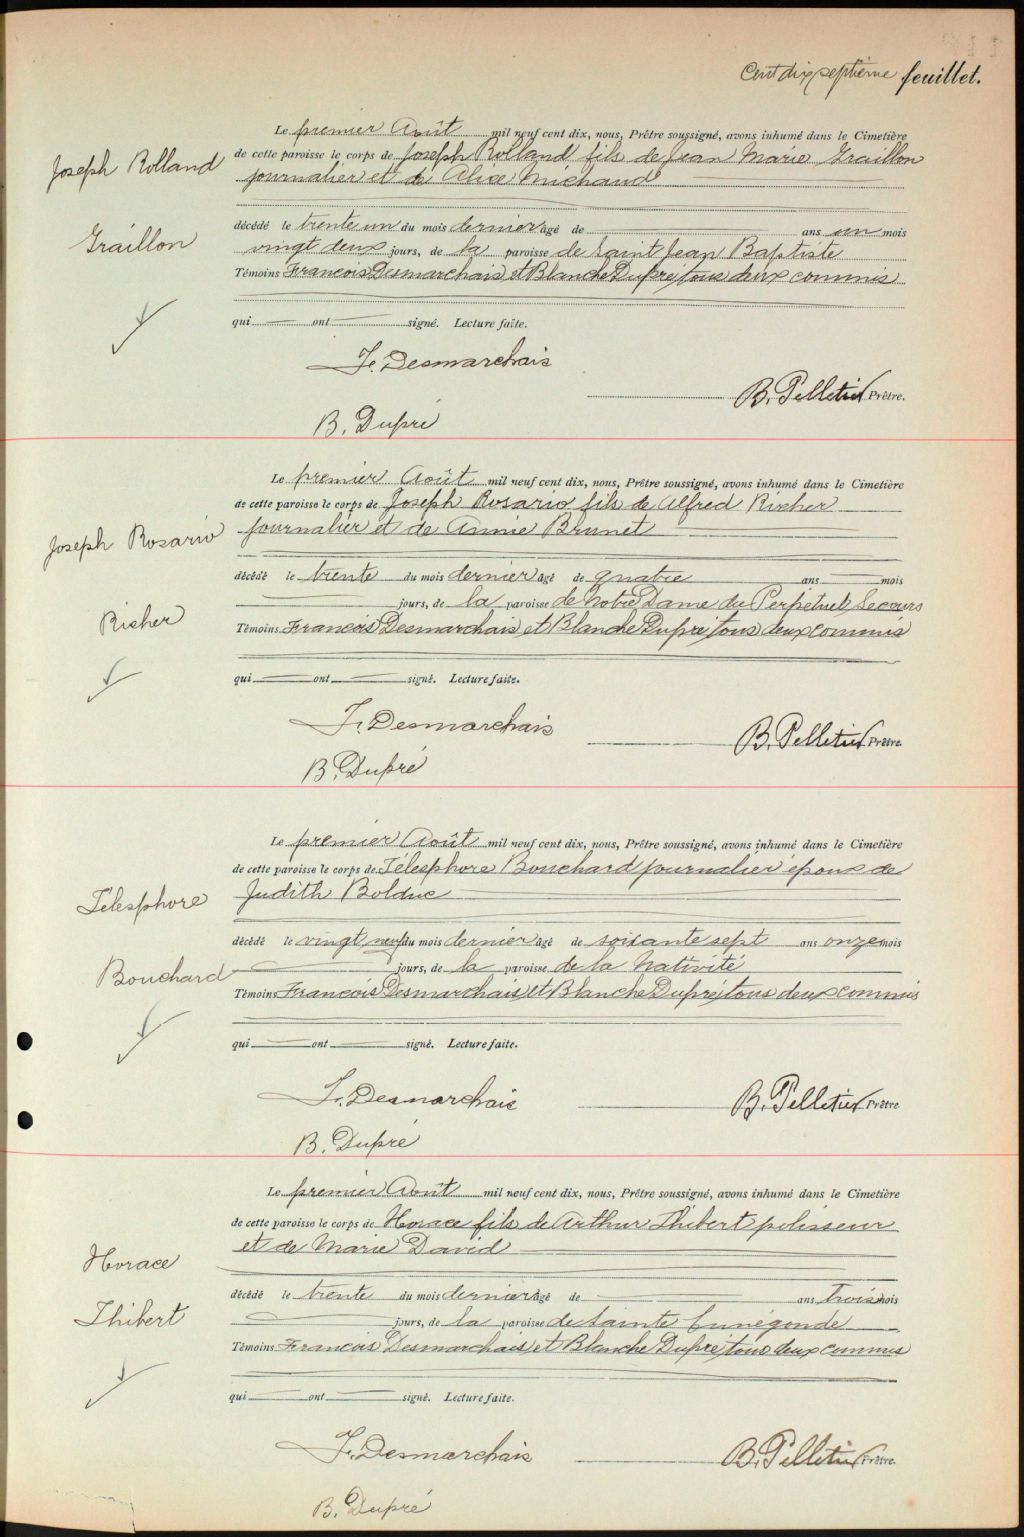 Cent dix septième feuillet.
Le premier Août mil neuf cent dix, nous, Prêtre soussigné, avons inhumé dans le Cimetière
de cette paroisse le corps de Joseph Rolland fils de Jean Marie Graillon
journalier et de Alice Michaud
Joseph Rolland
Graillon
décédé le trente un du mois dernier âgé de ans un mois
vingt deux jours, de la paroisse de Saint Jean Baptiste
Témoins Francois Desmarchais et Blanche Dupré tous deux commis
qui ont signé. Lecture faite.
F. Desmarchais
B. Pelletier Prêtre.
B. Dupré
Le premier Août mil neuf cent dix, nous, Prêtre soussigné, avons inhumé dans le Cimetière
de cette paroisse le corps de Joseph Rosario fils de Alfred Richer
journalier et de Annie Brunet
Joseph Rosario
Richer
décédé le trente du mois dernier âgé de quatre ans mois
jours, de la paroisse de Notre Dame du Perpetuel Secours
Témoins Francois Desmarchais et Blanche Dupré tous deux commis
qui ont signé. Lecture faite.
F. Desmarchais
B. Pelletier Prêtre.
B. Dupré
Le premier Août mil neuf cent dix, nous, Prêtre soussigné, avons inhumé dans le Cimetière
de cette paroisse le corps de Télesphore Bouchard journalier époux de
Judith Bolduc
Télesphore
Bouchard
décédé le vingt neuf du mois dernier âgé de soixante sept ans onze mois
jours, de la paroisse de la Nativité
Témoins Francois Desmarchais et Blanche Dupré tous deux commis
qui ont signé. Lecture faite.
F. Desmarchais
B. Pelletier Prêtre
B. Dupré
Le premier Août mil neuf cent dix, nous, Prêtre soussigné, avons inhumé dans le Cimetière
de cette paroisse le corps de Horace fils de Arthur Thibert polisseur
et de Marie David
Horace
Thibert
décédé le trente du mois dernier âgé de ans trois mois
jours, de la paroisse de Sainte Cunégonde
Témoins Francois Desmarchais et Blanche Dupré tous deux commis
qui ont signé. Lecture faite.
F. Desmarchais
B. Pelletier Prêtre.
B. Dupré